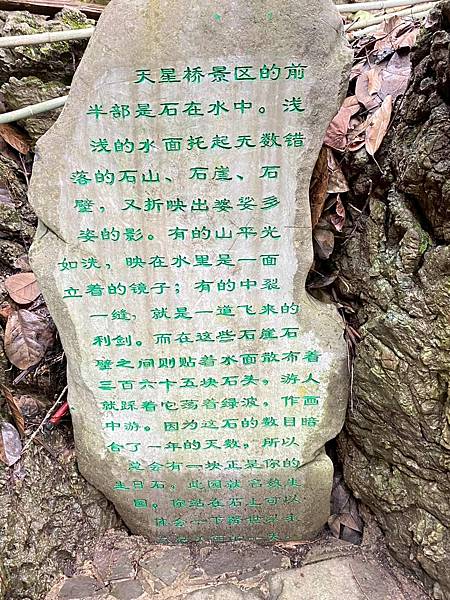 天星桥景区的前
半部是石在水中。浅
浅的水面托起无数错
落的石山、石崖、石
壁，又折映出婆娑多
姿的影。有的山平光
如洗，映在水里是一面
立着的镜子；有的中裂
一缝，就是一道飞来的
利剑。而在这些石崖石
壁之间则贴着水面散布着
三百六十五块石头，游人
就踩着它荡着绿波，作画
中游。因为这石的数目暗
合了一年的天数，所以
总会有一块正是你的
生日石，此园就名数生
园。你站在石上可以
体会一下